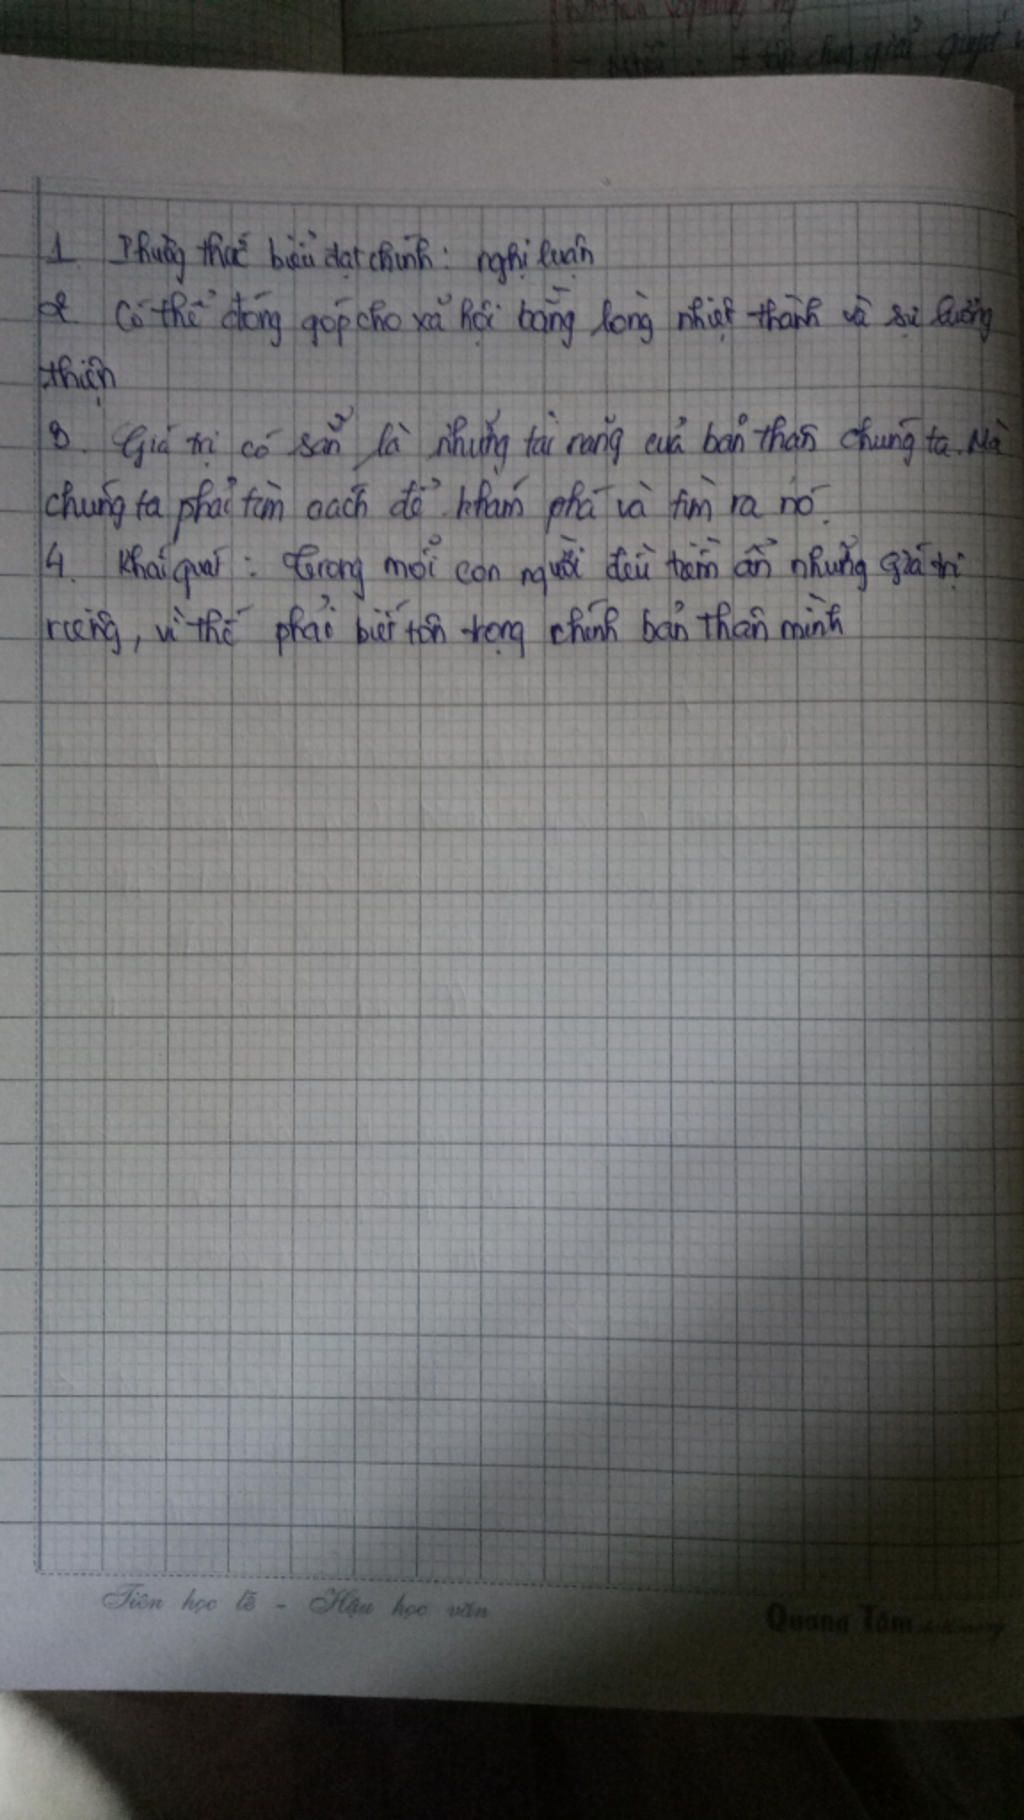 - Nhiều : + tập chung giải quyết
1. Phương thức biểu đạt chính: nghị luận
2. Có thể đóng góp cho xã hội bằng lòng nhiệt thành và sự lương
thiện
3. Giá trị có sẵn là những tài năng của bản thân chúng ta. Mà
chúng ta phải tìm cách để khám phá và tìm ra nó.
4. Khái quát: trong mỗi con người đều tiềm ẩn những giá trị
riêng, vì thế phải biết tôn trọng chính bản thân mình
Tiên học lễ - Hậu học văn
Quang Tâm